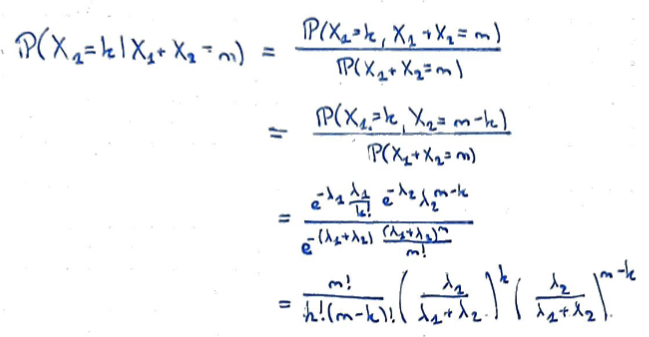 ℙ(X₁=k|X₁+X₂=m) = ℙ(X₁=k, X₁+X₂=m) / ℙ(X₁+X₂=m)
= ℙ(X₁=k, X₂=m-k) / ℙ(X₁+X₂=m)
= (e^{-λ₁} λ₁/k! e^{-λ₂} λ₂^{m-k}) / (e^{-(λ₁+λ₂)} (λ₁+λ₂)^m/m!)
= m!/(k!(m-k)!) (λ₁/(λ₁+λ₂))^k (λ₂/(λ₁+λ₂))^{m-k}